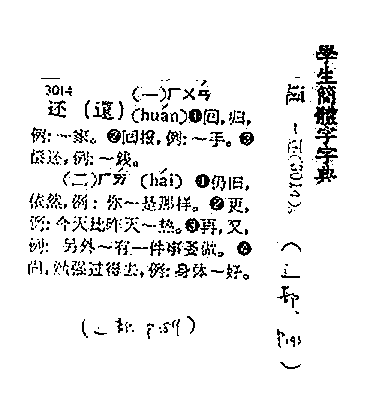 學生簡體字字典
3014
(一)ㄏㄨㄢˊ
还 (還) (huán)❶回,归,
例:一家。❷回报,例:~手。❸
偿还,例:~钱。
(二)ㄏㄞˊ (hái) ❶仍旧,
依然,例:你~是那样。❷更,
例:今天比昨天~热。❸再,又,
例:另外~有一件事要做。❹
尚,勉强过得去,例:身体~好。
(辶部 P.159)
(辶部 P.193)